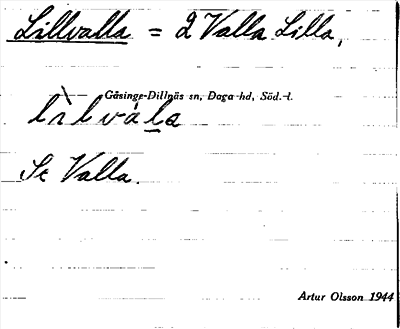 Lillvalla = 2 Valla Lilla,
Gåsinge-Dillnäs sn, Daga hd, Söd. l.
lìlvála
Se Valla.
Artur Olsson 1944